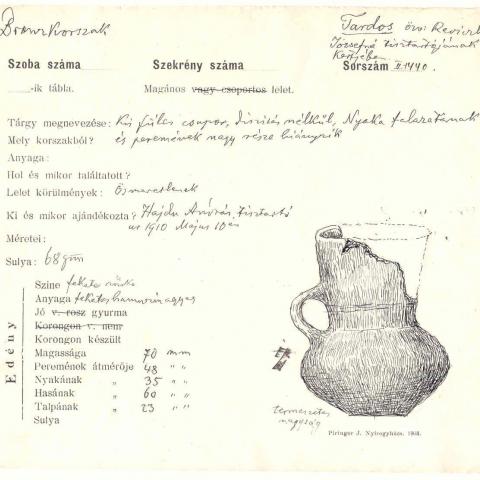 Bronzkorszak
Tardos özv. Reviczky
Józsefné tisztartójának
Kertjében.
Szoba száma
Szekrény száma
Sorszám II.1440.
-ik tábla.
Magános vagy csoportos lelet.
Tárgy megnevezése: Kis füles csupor, díszítés nélkül, Nyaka felszatának
Mely korszakból? és peremének nagy része hiányzik
Anyaga:
Hol és mikor találtatott?
Lelet körülmények: Ösmeretlenek
Ki és mikor ajándékozta? Hajdu András tisztartó
úr 1910 Május 10én
Méretei:
Sulya: 68 gm
Edény
Szine fekete szürke
Anyaga feketés hamvas agyag
Jó v. rosz gyurma
Korongon v. nem
Korongon készült
Magassága 70 mm
Peremének átmérője 48 " "
Nyakának " 35 " "
Hasának " 60 " "
Talpának " 23 " "
Sulya
természetes
nagyság
Piringer J. Nyiregyháza. 1908.